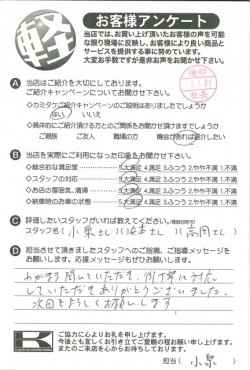 軽
お客様アンケート
当店では、お買い上げ頂いたお客様の声を可能な限り現場に反映し、お客様により良い商品と
サービスを提供する事に努めています。
大変お手数ですが是非お声をお聞かせ下さい。
検印
1.21
社長
A 当店はご紹介を大切にしております。
ご紹介キャンペーンについてお聞かせ下さい。
◇カミタケご紹介キャンペーンのご説明はありましたでしょうか
はい / いいえ
◇具体的にご紹介頂ける方とのご関係をお聞かせ頂けますでしょうか
ご親族 ご友人 職場の方 機会が有れば紹介したい
B 当店を実際にご利用になった印象をお聞かせ下さい。
◇総合的な満足度 5.大満足 4.満足 3.ふつう 2.やや不満 1.不満
◇スタッフの対応 5.大満足 4.満足 3.ふつう 2.やや不満 1.不満
◇お店の雰囲気、清掃 5.大満足 4.満足 3.ふつう 2.やや不満 1.不満
◇納車時のお車の状態 5.大満足 4.満足 3.ふつう 2.やや不満 1.不満
C 評価したいスタッフがいれば教えてください。(複数回答可)
スタッフ名 ( 小泉さん ) ( さん ) ( 高岡さん )
D 担当させて頂きましたスタッフへのご指摘、ご指導メッセージをお願いします。応援メッセージもぜひお聞かせ下さい。
わがまま聞いていただき、丁寧に対応
していただきありがとうございました。
次回もよろしくお願いします
K
ご協力に心よりお礼を申し上げます。
今後とも宜しくお引き立てご愛顧の程お願い申し上げます。
またのご来店を心からお待ちしております。
担当 ( 小泉 )